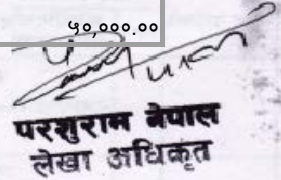 ५०,०००.००
परशुराम नेपाल
लेखा अधिकृत